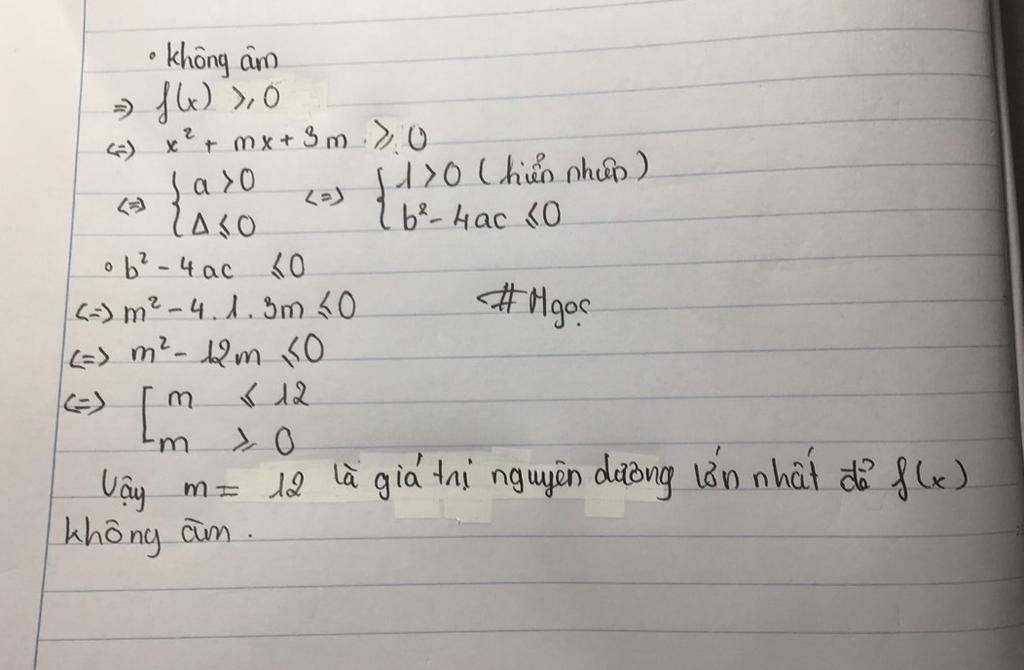 • không âm
=> f(x) ≥ 0
<=> x² + mx + 3m ≥ 0
<=> { a > 0 <=> { 1 > 0 (hiển nhiên)
Δ ≤ 0 b² - 4ac ≤ 0
∘ b² - 4ac ≤ 0
<=> m² - 4.1.3m ≤ 0 # Ngọc
<=> m² - 12m ≤ 0
<=> [ m ≤ 12
m ≥ 0
Vậy m = 12 là giá trị nguyên dương lớn nhất để f(x)
không âm.